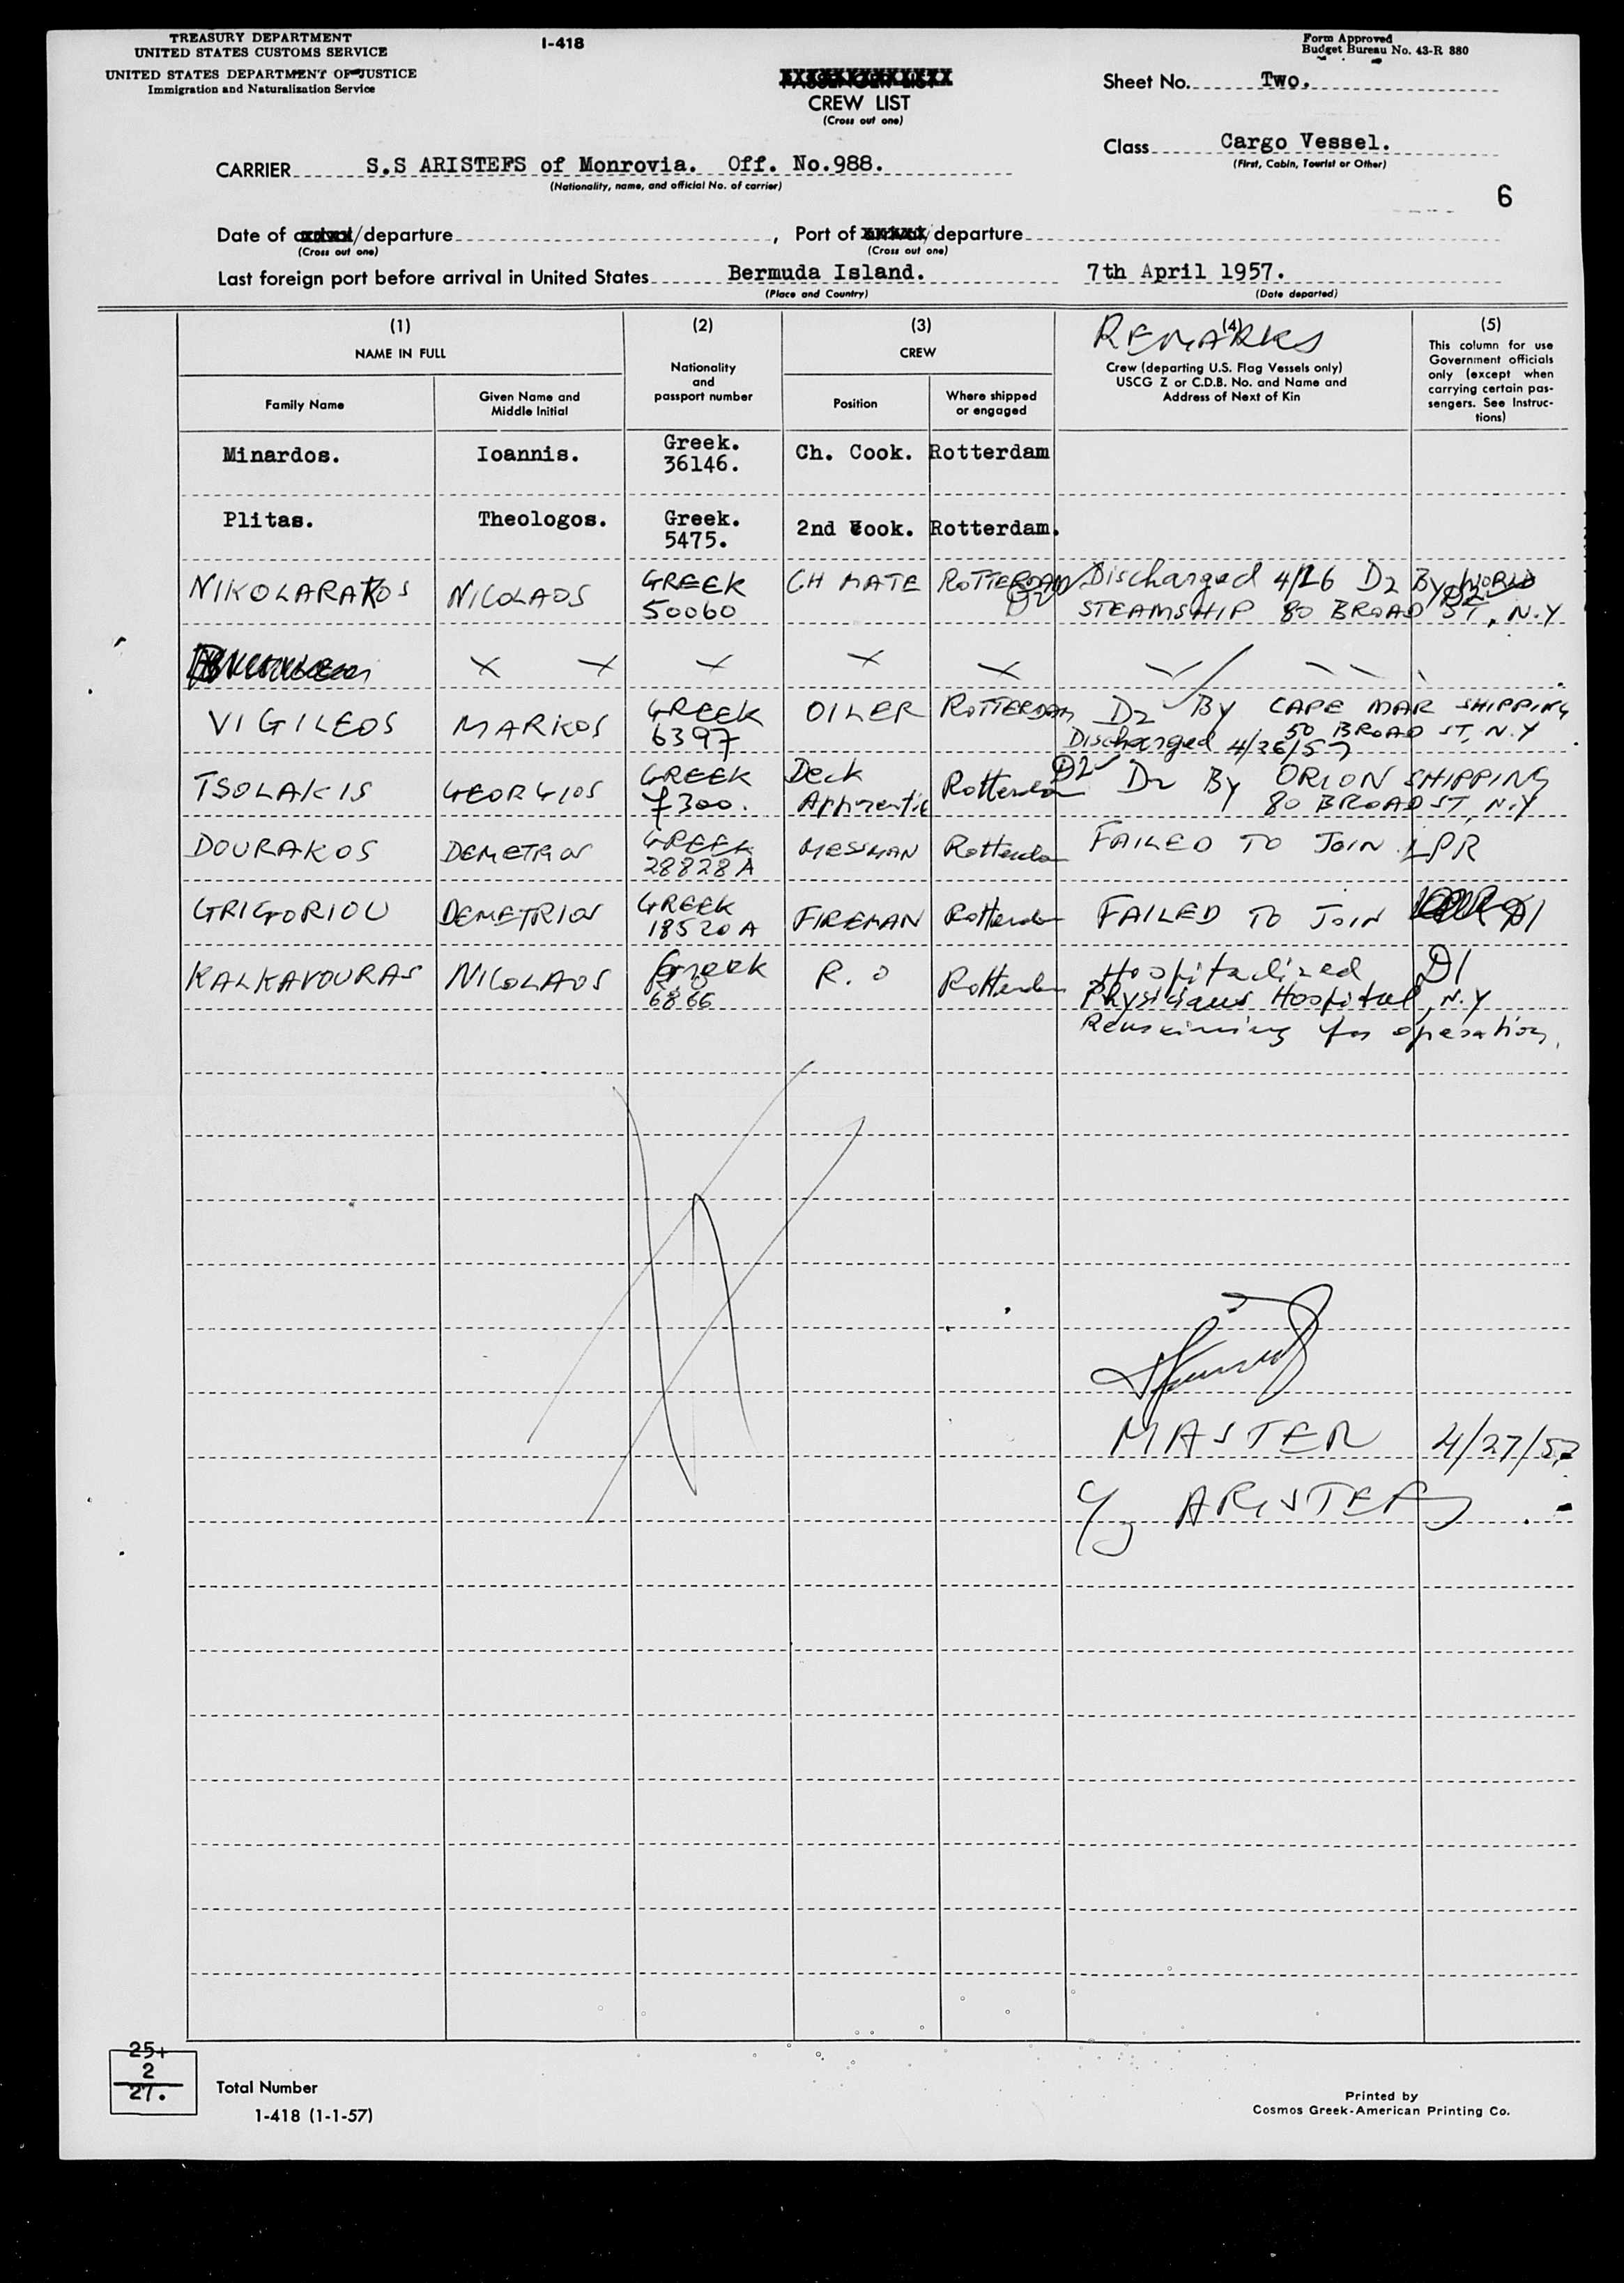 TREASURY DEPARTMENT
UNITED STATES CUSTOMS SERVICE
UNITED STATES DEPARTMENT OF JUSTICE
Immigration and Naturalization Service
I-418
Form Approved
Budget Bureau No. 43-R 380
PASSENGER LIST
CREW LIST
(Cross out one)
Sheet No. Two.
Class Cargo Vessel.
(First, Cabin, Tourist or Other)
CARRIER S.S ARISTEFS of Monrovia. Off. No.988.
(Nationality, name, and official No. of carrier)
6
Date of /departure , Port of /departure
(Cross out one) (Cross out one)
Last foreign port before arrival in United States Bermuda Island. 7th April 1957.
(Place and Country) (Date departed)
(1)
NAME IN FULL
Family Name
Given Name and
Middle Initial
(2)
Nationality
and
passport number
(3)
CREW
Position
Where shipped
or engaged
REMARKS
(4)
Crew (departing U.S. Flag Vessels only)
USCG Z or C.D.B. No. and Name and
Address of Next of Kin
(5)
This column for use
Government officials
only (except when
carrying certain pas-
sengers. See Instruc-
tions)
Minardos. Ioannis. Greek. Ch. Cook. Rotterdam
36146.
Plitas. Theologos. Greek. 2nd Cook. Rotterdam.
5475.
NIKOLARAKOS NICOLAOS GREEK CH MATE ROTTERDAM Discharged 4/26 D2 By WORLD
50060 D2 STEAMSHIP 80 BROAD ST, N.Y D2
x x x x x
VIGILEOS MARKOS GREEK OILER ROTTERDAM D2 By CAPE MAR SHIPPING
6397 50 BROAD ST, N.Y
Discharged 4/26/57
TSOLAKIS GEORGIOS GREEK Deck Rotterdam D2 D2 By ORION SHIPPING
7300. Apprentic 80 BROAD ST, N.Y
DOURAKOS DEMETRIOS GREEK MESSMAN Rotterdam FAILED TO JOIN LPR
28828A
GRIGORIOU DEMETRIOS GREEK FIREMAN Rotterdam FAILED TO JOIN D1
18520A
KALKAVOURAS NICOLAOS Greek R.O Rotterdam Hospitalized D1
6866 Physicians Hospital, N.Y
Remaining for operation.
MASTER 4/27/57
S/S ARISTEFS
25+
2
27.
Total Number
I-418 (1-1-57)
Printed by
Cosmos Greek-American Printing Co.